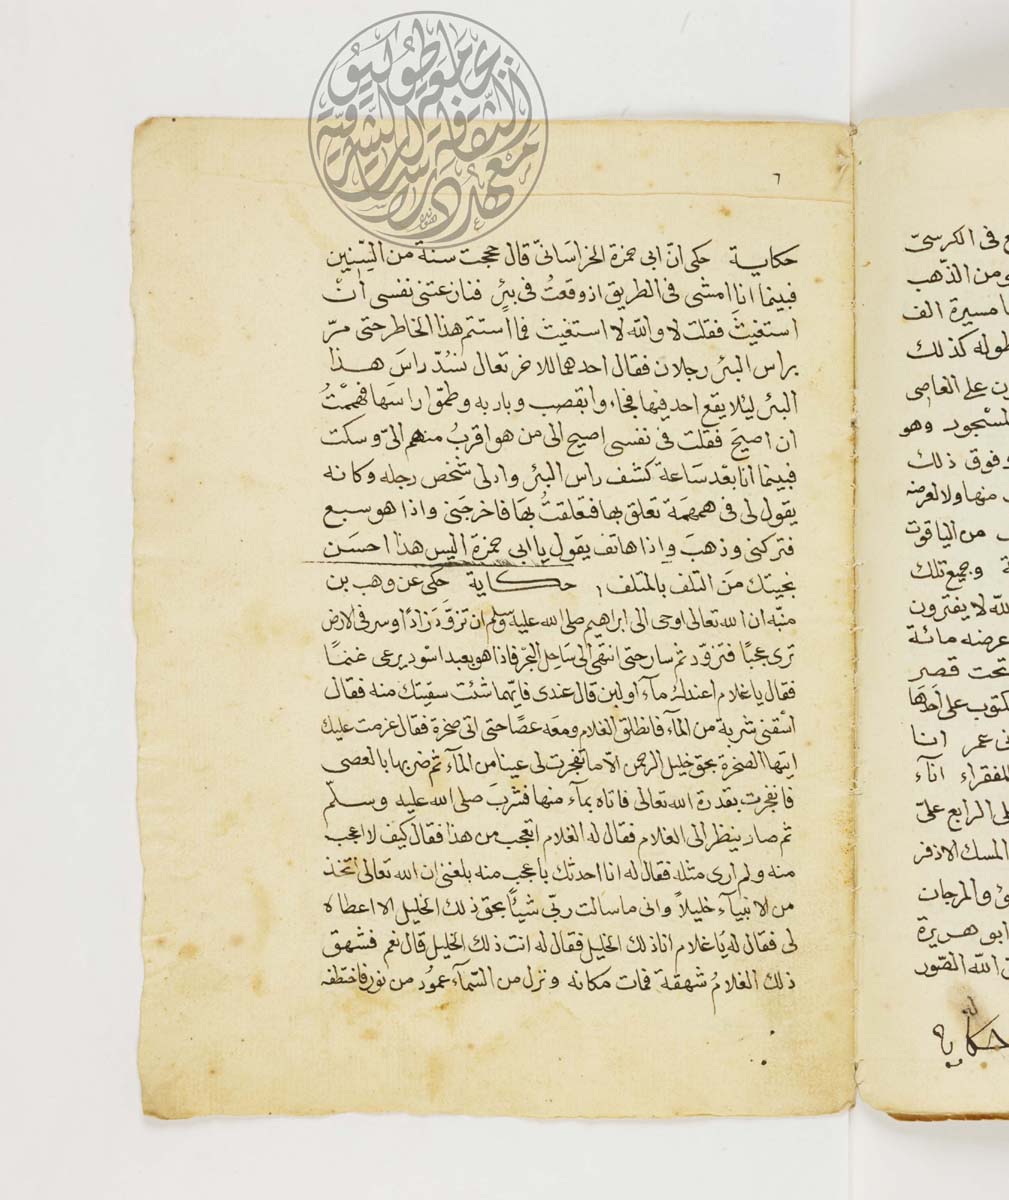 ٦
حكاية حكى انّ ابى حمزة الخراسانىّ قال حججت سنة من السّنين
فبينما انا امشى فى الطريق اذ وقعتُ فى بئرٍ فنازعتنى نفسى انْ
استغيثَ فقلت لا والله لا استغيث فما استتم هذا الخاطر حتى مرّ
براس البئر رجلان فقال احدهما للاخر تعال نسُدّ راسَ هذا
البئر ليلا يقع احد فيها فجاء واتقصب وباربه وطمّوا راسَها فهممتُ
ان اصيحَ فقلت فى نفسى اصيح الى من هو اقربُ منهم الىّ وسكت
فبينما انا بعد سَاعة كشف راس البئر وادلى شخص رجله وكانه
يقول لى فى همهمَة تعلق بها فتعلقتُ بهَا فاخرجَنى واذا هو سبع
فتركنى وذهبَ واذا هاتف يقول يا ابى حمزة اليس هذا احسَن
نجيتك منَ التلف بالمتلف حكاية حكى عن وهب بن
منبّه ان الله تعالى اوحى الى ابراهيم صلى الله عليه وسلم ان تزوّدَ زَادًا وسر فى الارض
ترى عجبًا فتزوّد ثم سار حتى انتهى الى سَاحِل البحر فاذا هو بعبد اسْود يرعى غنمًا
فقال يا غلام اعندك مآء او لبن قال عندى فايّهما شئت سقيتك منه فقال
اسْقنى شربة من المآء فانطلق الغلام ومعَه عصًا حتى اتى صخرة فقال عزمت عليك
ايتها الصّخرة بحق خليل الرحمن الّا ما تفجرت لى عينا من المآء ثم ضربها بالعصى
فانفجرت بقدرة الله تعالى فاتاه بمآء منها فشربَ صلى الله عليه وسلّم
ثم صار ينظر الى الغلام فقال له الغلام اتعجب من هذا فقال كيف لا اعجب
منه ولم ارى مثله فقال له انا احدثك باعجب منه بلغنى ان الله تعالى اتخذ
من الانبيآء خليلاً وانى ما سالت ربّى شيأً بحق ذلك الخليل الا اعطاه
لى فقال له يا غلام انا ذلك الخليل فقال له انت ذلك الخليل قال نعم فشهق
ذلك الغلامُ شهقة فمات مكانه ونزل من السّمآء عمُود من نور فاختطفه
ع فى الكرسىّ
ومن الذّهب
مسيرة الف
طوله كذلك
ون على العاصى
المسْجور وهو
وفوق ذلك
منها ولا لعرضه
من الياقوت
وجميع تلك
لله لا يفترون
عرضه مائة
تحت قصر
مكتوب على احدَها
عمر انا
للفقراء انآء
الرابع علىّ
المسك الاذفر
والمرجان
ابو هريرة
الله الصّور
حكاية